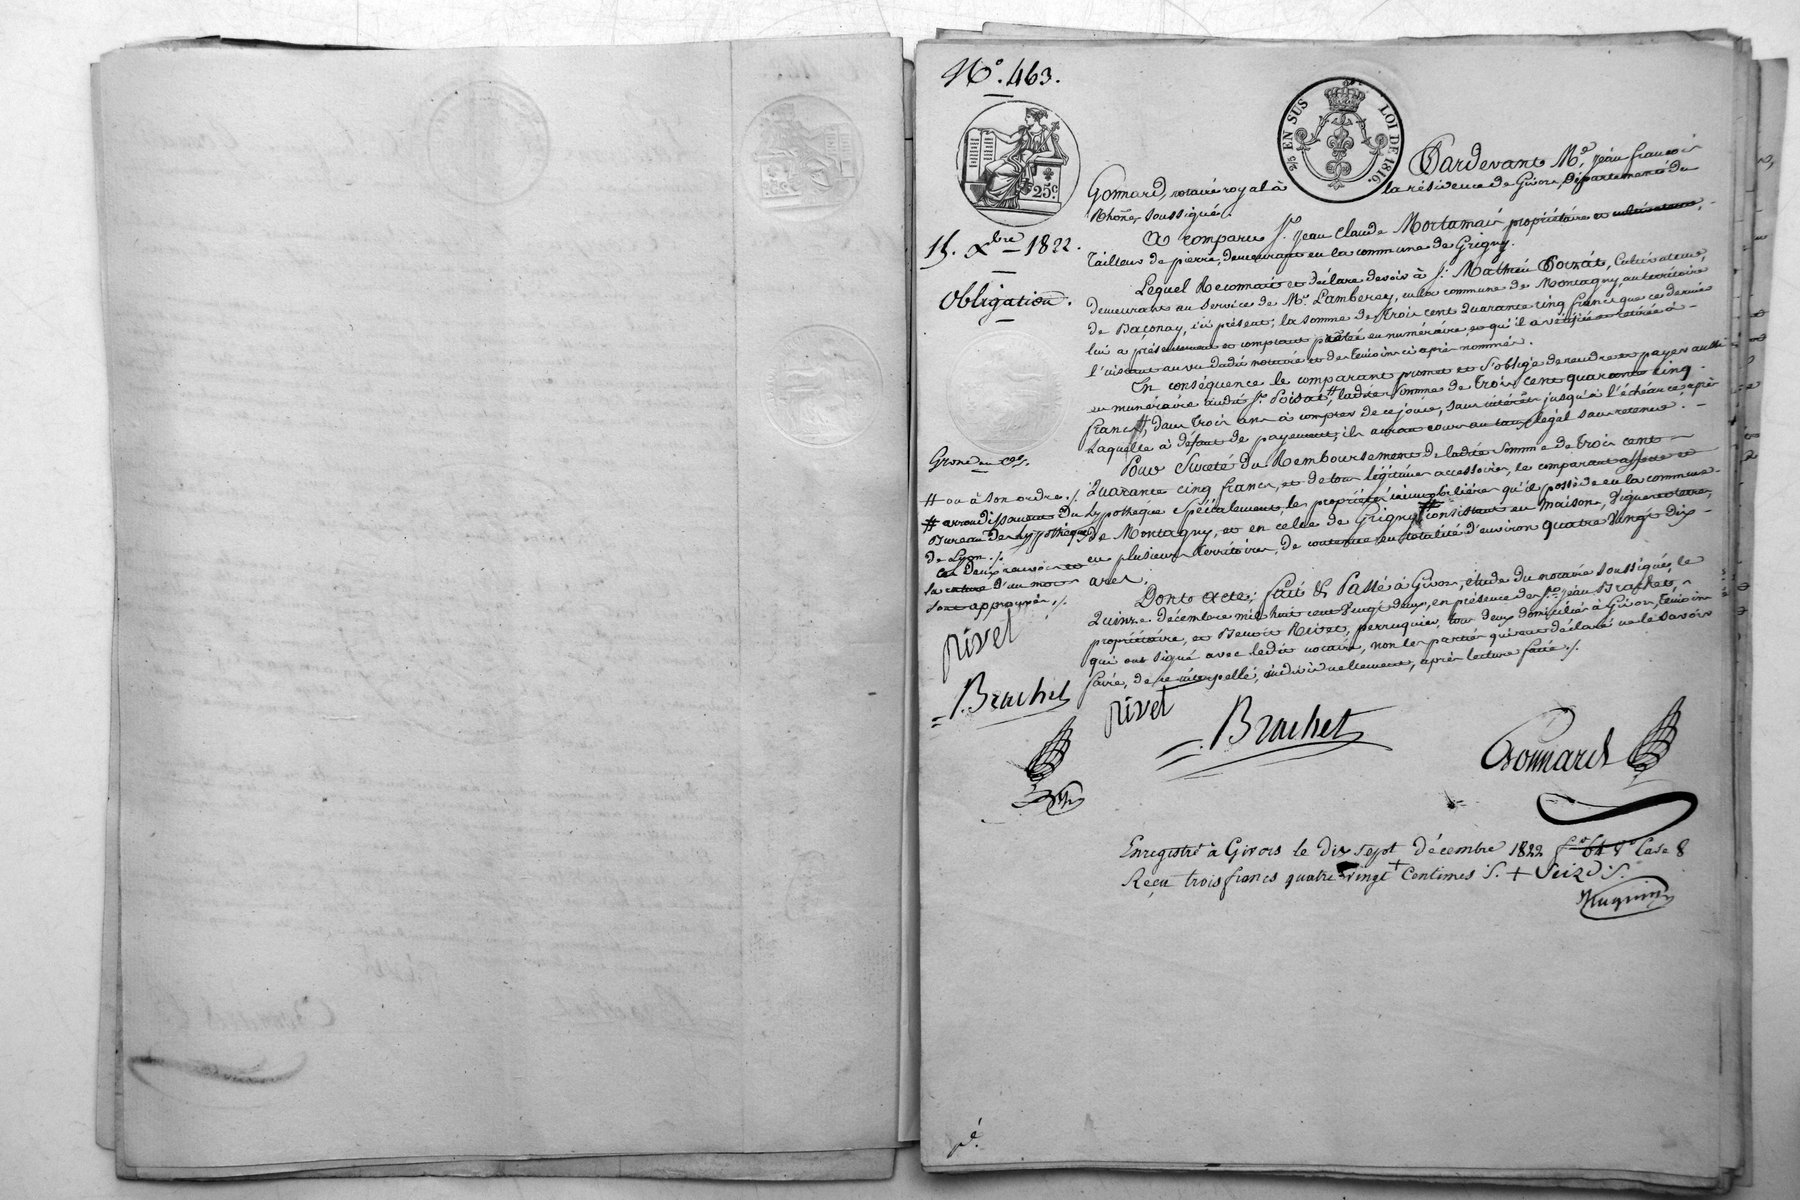 N.° 463.
2/5 EN SUS LOI DE 1816.
25c.
15. Xbre 1822.
Obligation.
Pardevant Me. Jean François
Gonnard, notaire royal à la résidence de Givors, Département du
Rhône, soussigné.
A comparu Sr. Jean Claude Mortamais propriétaire et cultivateur,
tailleur de pierre, demeurant en la commune de Grigny.
Lequel Reconnait et déclare devoir à Sr. Mathieu Poizat, Cultivateur,
demeurant au service de Mr. en la commune de Montagny, au territoire
de Baçonay, ici présent, la somme de trois cent quarante cinq francs que ce dernier
lui a présentement et comptant prêtée en numéraire, et qu'il a vérifiée et retirée à
l'instant au vu dudit notaire et des témoins ci après nommés.
En conséquence le comparant promet et s'oblige de rendre et payer aussi
en numéraire audit Sr. Poizat #, ladite somme de trois cent quarante cinq
francs, dans trois ans à compter de ce jour, sans intérêts jusqu'à l'échéance, après
laquelle à défaut de payement, ils auront cours au taux légal sans retenue.
Pour Sureté du Remboursement de ladite Somme de trois cent
quarante cinq francs, et de tous légitimes accessoires, le comparant affecte et
hypothèque spécialement, les propriétés immobilières qu'il possède en la commune
de Montagny, et en celle de Grigny # consistant en maison, vignes et terres,
en plusieurs territoires, de contenue en totalité d'environ quatre vingt dix
ares.
Dont acte; fait & Passé à Givors, étude du notaire soussigné, le
quinze décembre mil huit cent vingt deux, en présence de Srs. Jean Brachet,
propriétaire, et Benoit Rivet, perruquier, tous deux domiciliés à Givors, témoins
qui ont signé avec ledit notaire, non les parties qui ont déclaré ne le savoir
faire, de ce interpellé, individuellement, après lecture faite ./.
# ou à son ordre ./.
# arrondissement du
Bureau des hypothèques
de Lyon ./.
Ces deux renvois et
la rature d'un mot
sont approuvés ./.
Rivet
Brachet
Rivet
Brachet
Gonnard
Enregistré à Givors le dix sept décembre 1822 fo. 64 Vo Case 8
Reçu trois francs quatre vingt Centimes S. + Seize S.
Huguin